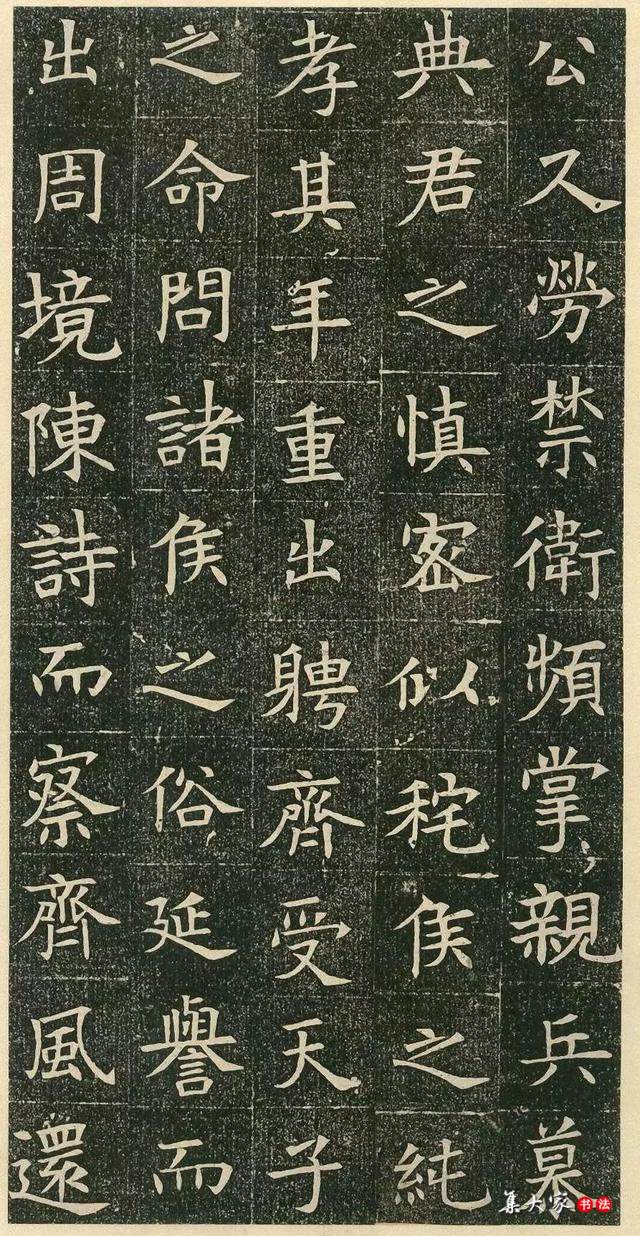 公久勞禁衛頻掌親兵慕
典君之慎密似秺侯之純
孝其年重出聘齊受天子
之命問諸侯之俗延譽而
出周境陳詩而察齊風還
集大家 书法